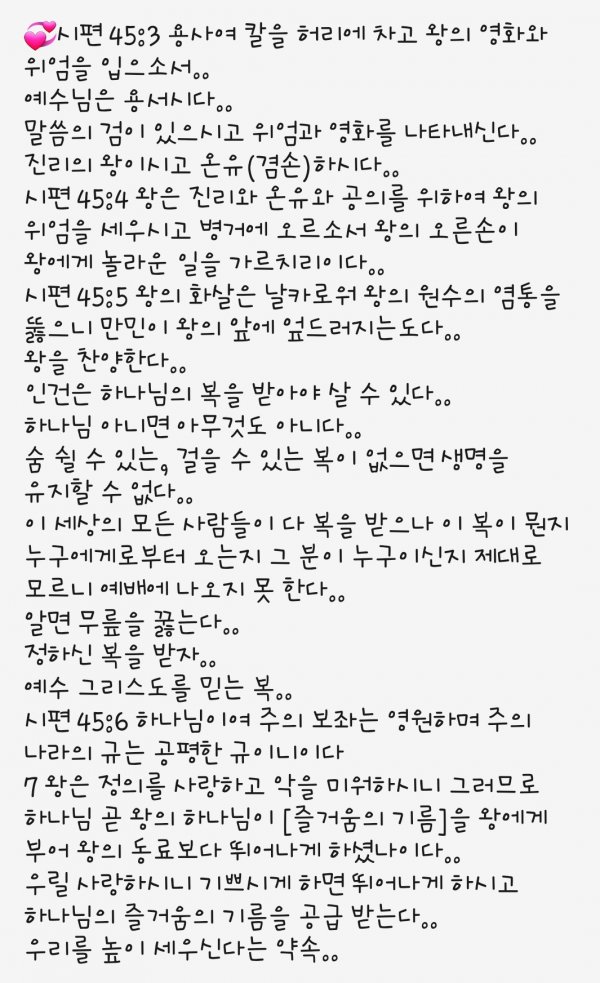 💞시편 45:3 용사여 칼을 허리에 차고 왕의 영화와
위엄을 입으소서。。
예수님은 용서시다。。
말씀의 검이 있으시고 위엄과 영화를 나타내신다。。
진리의 왕이시고 온유(겸손)하시다。。
시편 45:4 왕은 진리와 온유와 공의를 위하여 왕의
위엄을 세우시고 병거에 오르소서 왕의 오른손이
왕에게 놀라운 일을 가르치리이다。。
시편 45:5 왕의 화살은 날카로워 왕의 원수의 염통을
뚫으니 만민이 왕의 앞에 엎드러지는도다。。
왕을 찬양한다。。
인건은 하나님의 복을 받아야 살 수 있다。。
하나님 아니면 아무것도 아니다。。
숨 쉴 수 있는, 걸을 수 있는 복이 없으면 생명을
유지할 수 없다。。
이 세상의 모든 사람들이 다 복을 받으나 이 복이 뭔지
누구에게로부터 오는지 그 분이 누구이신지 제대로
모르니 예배에 나오지 못 한다。。
알면 무릎을 꿇는다。。
정하신 복을 받자。。
예수 그리스도를 믿는 복。。
시편 45:6 하나님이여 주의 보좌는 영원하며 주의
나라의 규는 공평한 규이니이다
7 왕은 정의를 사랑하고 악을 미워하시니 그러므로
하나님 곧 왕의 하나님이 [즐거움의 기름]을 왕에게
부어 왕의 동료보다 뛰어나게 하셨나이다。。
우릴 사랑하시니 기쁘시게 하면 뛰어나게 하시고
하나님의 즐거움의 기름을 공급 받는다。。
우리를 높이 세우신다는 약속。。